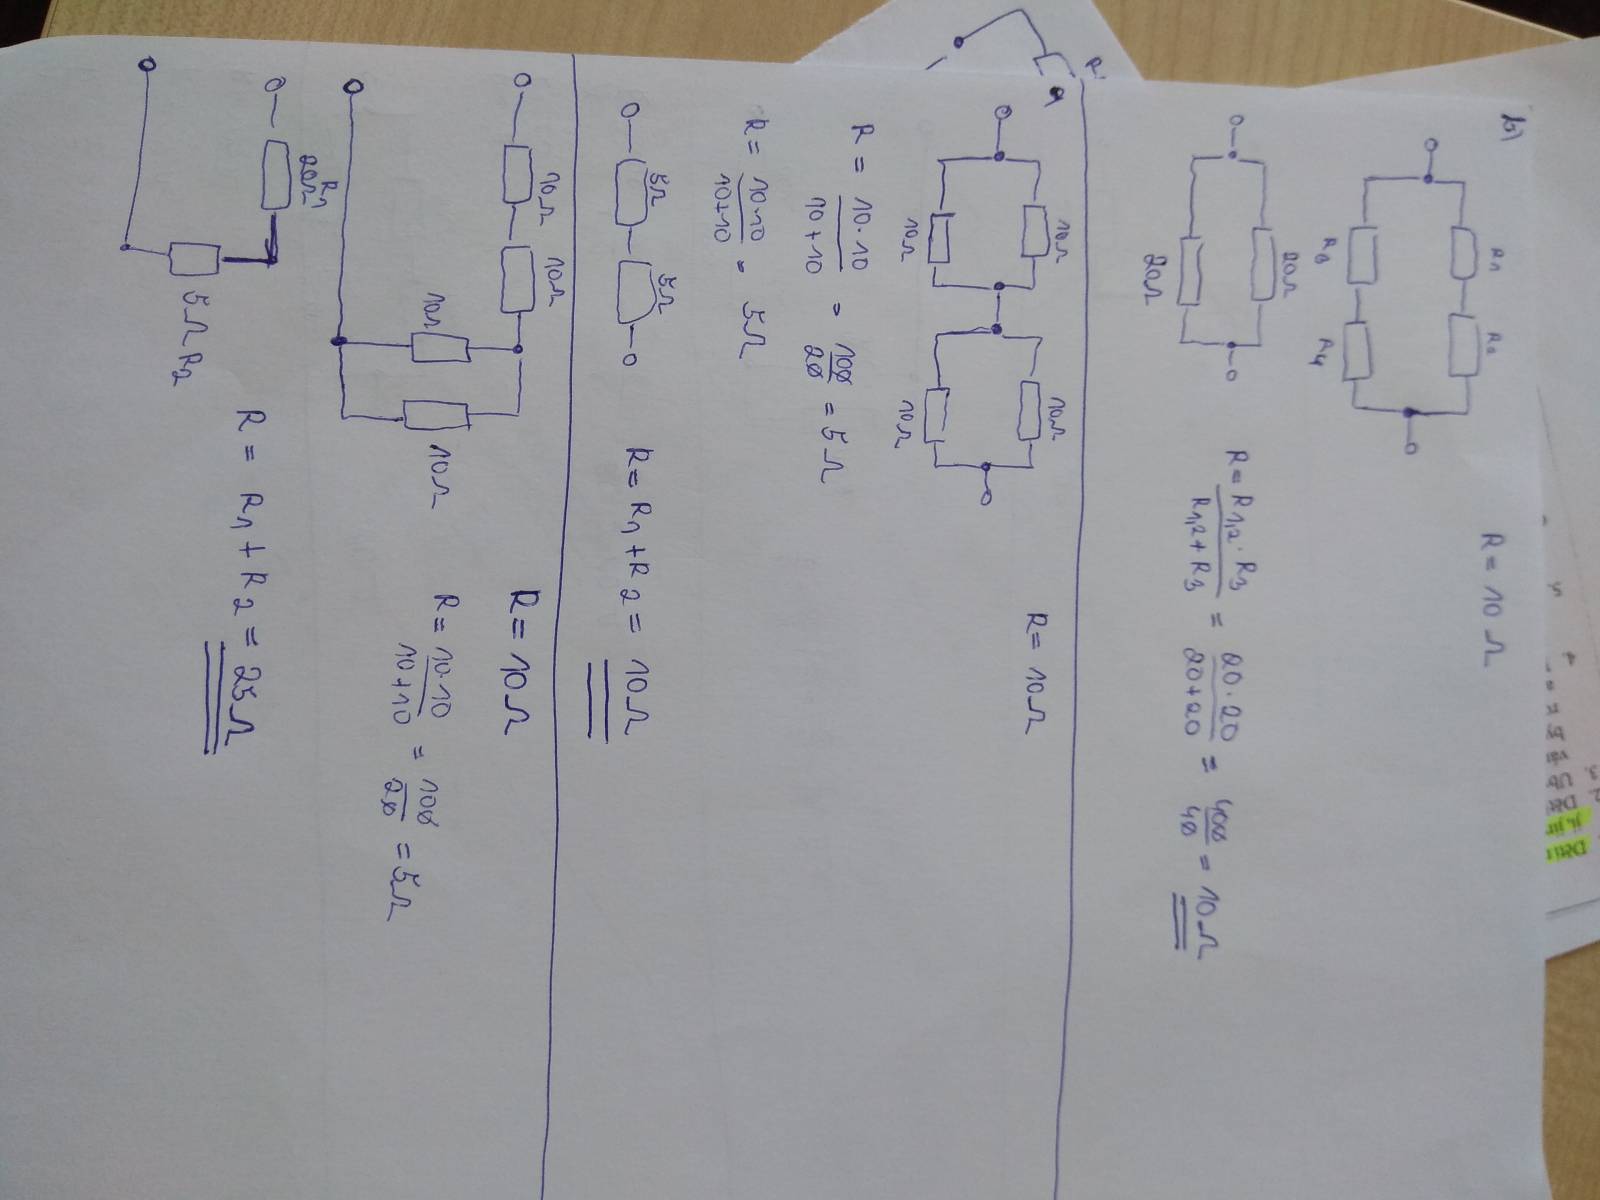 b)
R = 10 Ω
R1 R2
R3 R4
20Ω
20Ω
R = R1,2 · R3 / R1,2 + R3 = 20 · 20 / 20 + 20 = 400 / 40 = 10 Ω
R = 10 Ω
10Ω 10Ω
10Ω 10Ω
R = 10 · 10 / 10 + 10 = 100 / 20 = 5 Ω
R = 10 · 10 / 10 + 10 = 5 Ω
5Ω 5Ω
R = R1 + R2 = 10 Ω
R = 10 Ω
10Ω 10Ω
10Ω
10 Ω
R = 10 · 10 / 10 + 10 = 100 / 20 = 5 Ω
R1
20Ω
5 Ω R2
R = R1 + R2 = 25 Ω